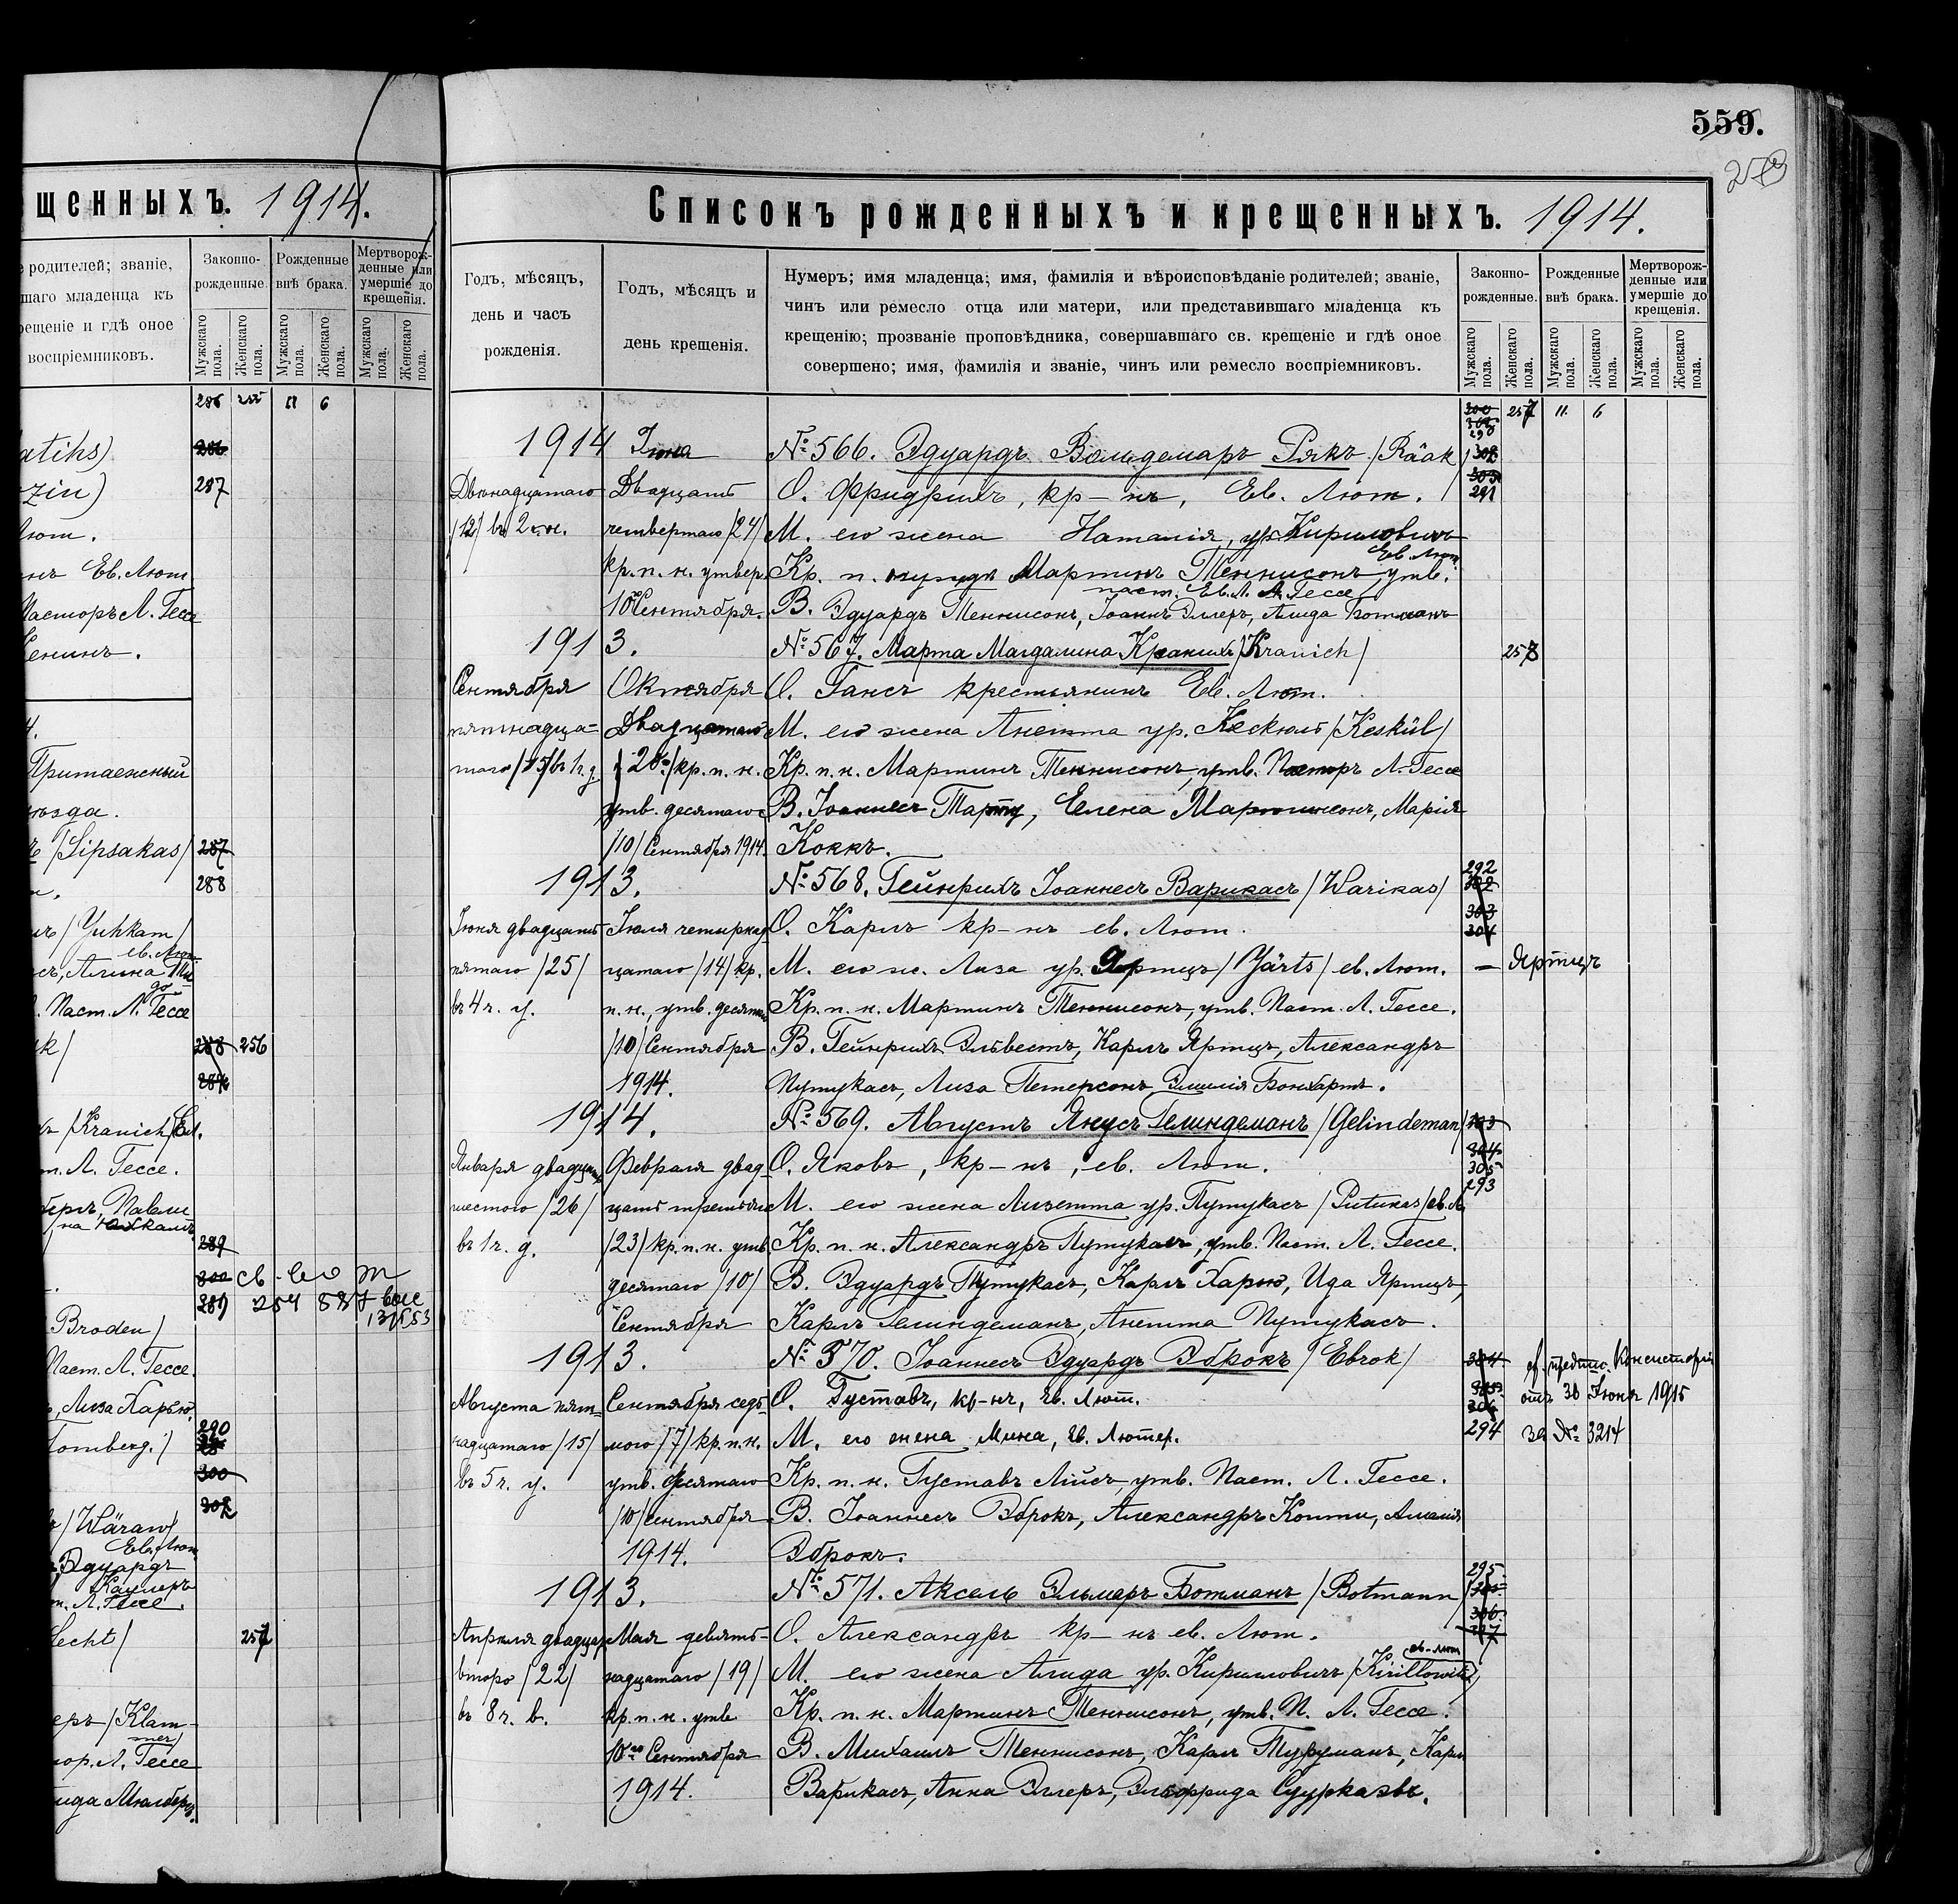 щенныхъ. 1914.
е родителей; званіе,
шаго младенца къ
рещеніе и гдѣ оное
воспріемниковъ.
Законно-
рожденные.
Рожденные
внѣ брака.
Мертворож-
денные или
умершіе до
крещенія.
Мужскаго пола.
Женскаго пола.
Мужскаго пола.
Женскаго пола.
Мужскаго пола.
Женскаго пола.
286 11 6
atihs)
286
zin)
287
Лют.
нъ Ев. Лют
Пасторъ Л. Гессе
4.
уѣзда.
/Sipsakas/ 287
288
/Yuhkam/
ев. Лют.
. Паст. Л. Гессе
k/ 288 256
/Kranich/
т. Л. Гессе.
289
300
289 254
Broden/
Паст. Л. Гессе.
, Лиза Харью.
290
Tomberg./
300
302
/Wäraw/
Ев. Лют
Эдуардъ
т. Л. Гессе.
Lecht/ 257
еръ /Klam-
mer/
ор. Л. Гессе
559.
Списокъ рожденныхъ и крещенныхъ. 1914.
Годъ, мѣсяцъ,
день и часъ
рожденія.
Годъ, мѣсяцъ и
день крещенія.
Нумеръ; имя младенца; имя, фамилія и вѣроисповѣданіе родителей; званіе,
чинъ или ремесло отца или матери, или представившаго младенца къ
крещенію; прозваніе проповѣдника, совершавшаго св. крещеніе и гдѣ оное
совершено; имя, фамилія и званіе, чинъ или ремесло воспріемниковъ.
Законно-
рожденные.
Рожденные
внѣ брака.
Мертворож-
денные или
умершіе до
крещенія.
Мужскаго пола.
Женскаго пола.
Мужскаго пола.
Женскаго пола.
Мужскаго пола.
Женскаго пола.
300 257 11 6
1914 Іюня № 566. Эдуардъ Вольдемаръ Рякъ /Rääk/ 302
Двѣнадцатаго Двадцать О. Фридрихъ, кр-нъ, Ев. Лют. 291
/12/ въ 2 ч. н. четвертаго /24/ М. его жена Наталія, ур. Кириловичъ
Ев. Лют
кр. п. н. утвер. Кр. п. нужде Мартинъ Теннисонъ, утв.
паст. Ев. Л. Л. Гессе
10го Сентября. В. Эдуардъ Теннисонъ, Іоаннъ Эллеръ, Алида Ботманъ
1913. № 567. Марта Магдалина Кранихъ /Kranich/ 258
Сентября Октября О. Гансъ крестьянинъ Ев. Лют.
пятнадца- Двадцатаго М. его жена Анетта ур. Кескюль /Keskül/
таго /15/ въ 1 ч. д. /20/ кр. п. н. Кр. п. н. Мартинъ Теннисонъ, утв. Пасторъ Л. Гессе
утв. десятаго В. Іоаннесъ Тарту, Елена Мартинсонъ, Марія
/10/ Сентября 1914. Коккъ.
1913. № 568. Гейнрихъ Іоаннесъ Варикасъ /Warikas/ 292
Іюня двадцать Іюля четырнад О. Карлъ кр-нъ ев. Лют. 303 304
пятаго /25/ цатаго /14/ кр. М. его ж. Лиза ур. Яртцъ /Järts/ ев. Лют. — Яртцъ
въ 4 ч. у. п. н., утв. десятаго Кр. п. н. Мартинъ Теннисонъ, утв. Паст. Л. Гессе.
/10/ Сентября В. Гейнрихъ Эльвестъ, Карлъ Яртцъ, Александръ
1914. Путукасъ, Лиза Петерсонъ Эмилія Бонхартъ.
1914. № 569. Августъ Янусъ Гелиндеманъ /Gelindeman/ 303
Января двадцать Февраля двад О. Яковъ, кр-нъ, ев. Лют. 304 305
шестого /26/ цать третьяго М. его жена Лизетта ур. Путукасъ /Putukas/ ев. Л. 293
въ 1 ч. д. /23/ кр. п. н. утв. Кр. п. н. Александръ Путукасъ, утв. Паст. Л. Гессе.
десятаго /10/ В. Эдуардъ Путукасъ, Карлъ Харью, Ида Яртцъ,
Сентября Карлъ Гелиндеманъ, Анетта Путукасъ.
1913. № 570. Іоаннесъ Эдуардъ Эброкъ /Ebrok/ 304 предпис. Консисторіи
Августа пят- Сентября седь- О. Густавъ, кр-нъ, Ев. Лют. отъ 30 Іюня 1915
надцатаго /15/ мого /7/ кр. п. н. М. его жена Мина, Ев. Лютер. 294 за № 3214
въ 5 ч. у. утв. десятаго Кр. п. н. Густавъ Лійсъ, утв. Паст. Л. Гессе.
/10/ сентября В. Іоаннесъ Эброкъ, Александръ Конти, Амалія
1914. Эброкъ.
1913. № 571. Аксель Эльмаръ Ботманъ /Botmann/ 295
Апрѣля двадцать Мая девять- О. Александръ кр-нъ ев. Лют. 306 307
ев-лют
второ /22/ надцатаго /19/ М. его жена Алида ур. Кириловичъ /Kirillowitz/
въ 8 ч. в. кр. п. н. утв Кр. п. н. Мартинъ Теннисонъ, утв. П. Л. Гессе.
10го Сентября В. Михаилъ Теннисонъ, Карлъ Туруманъ, Карлъ
1914. Варикасъ, Анна Эллеръ, Эльфрида Сурказъ.